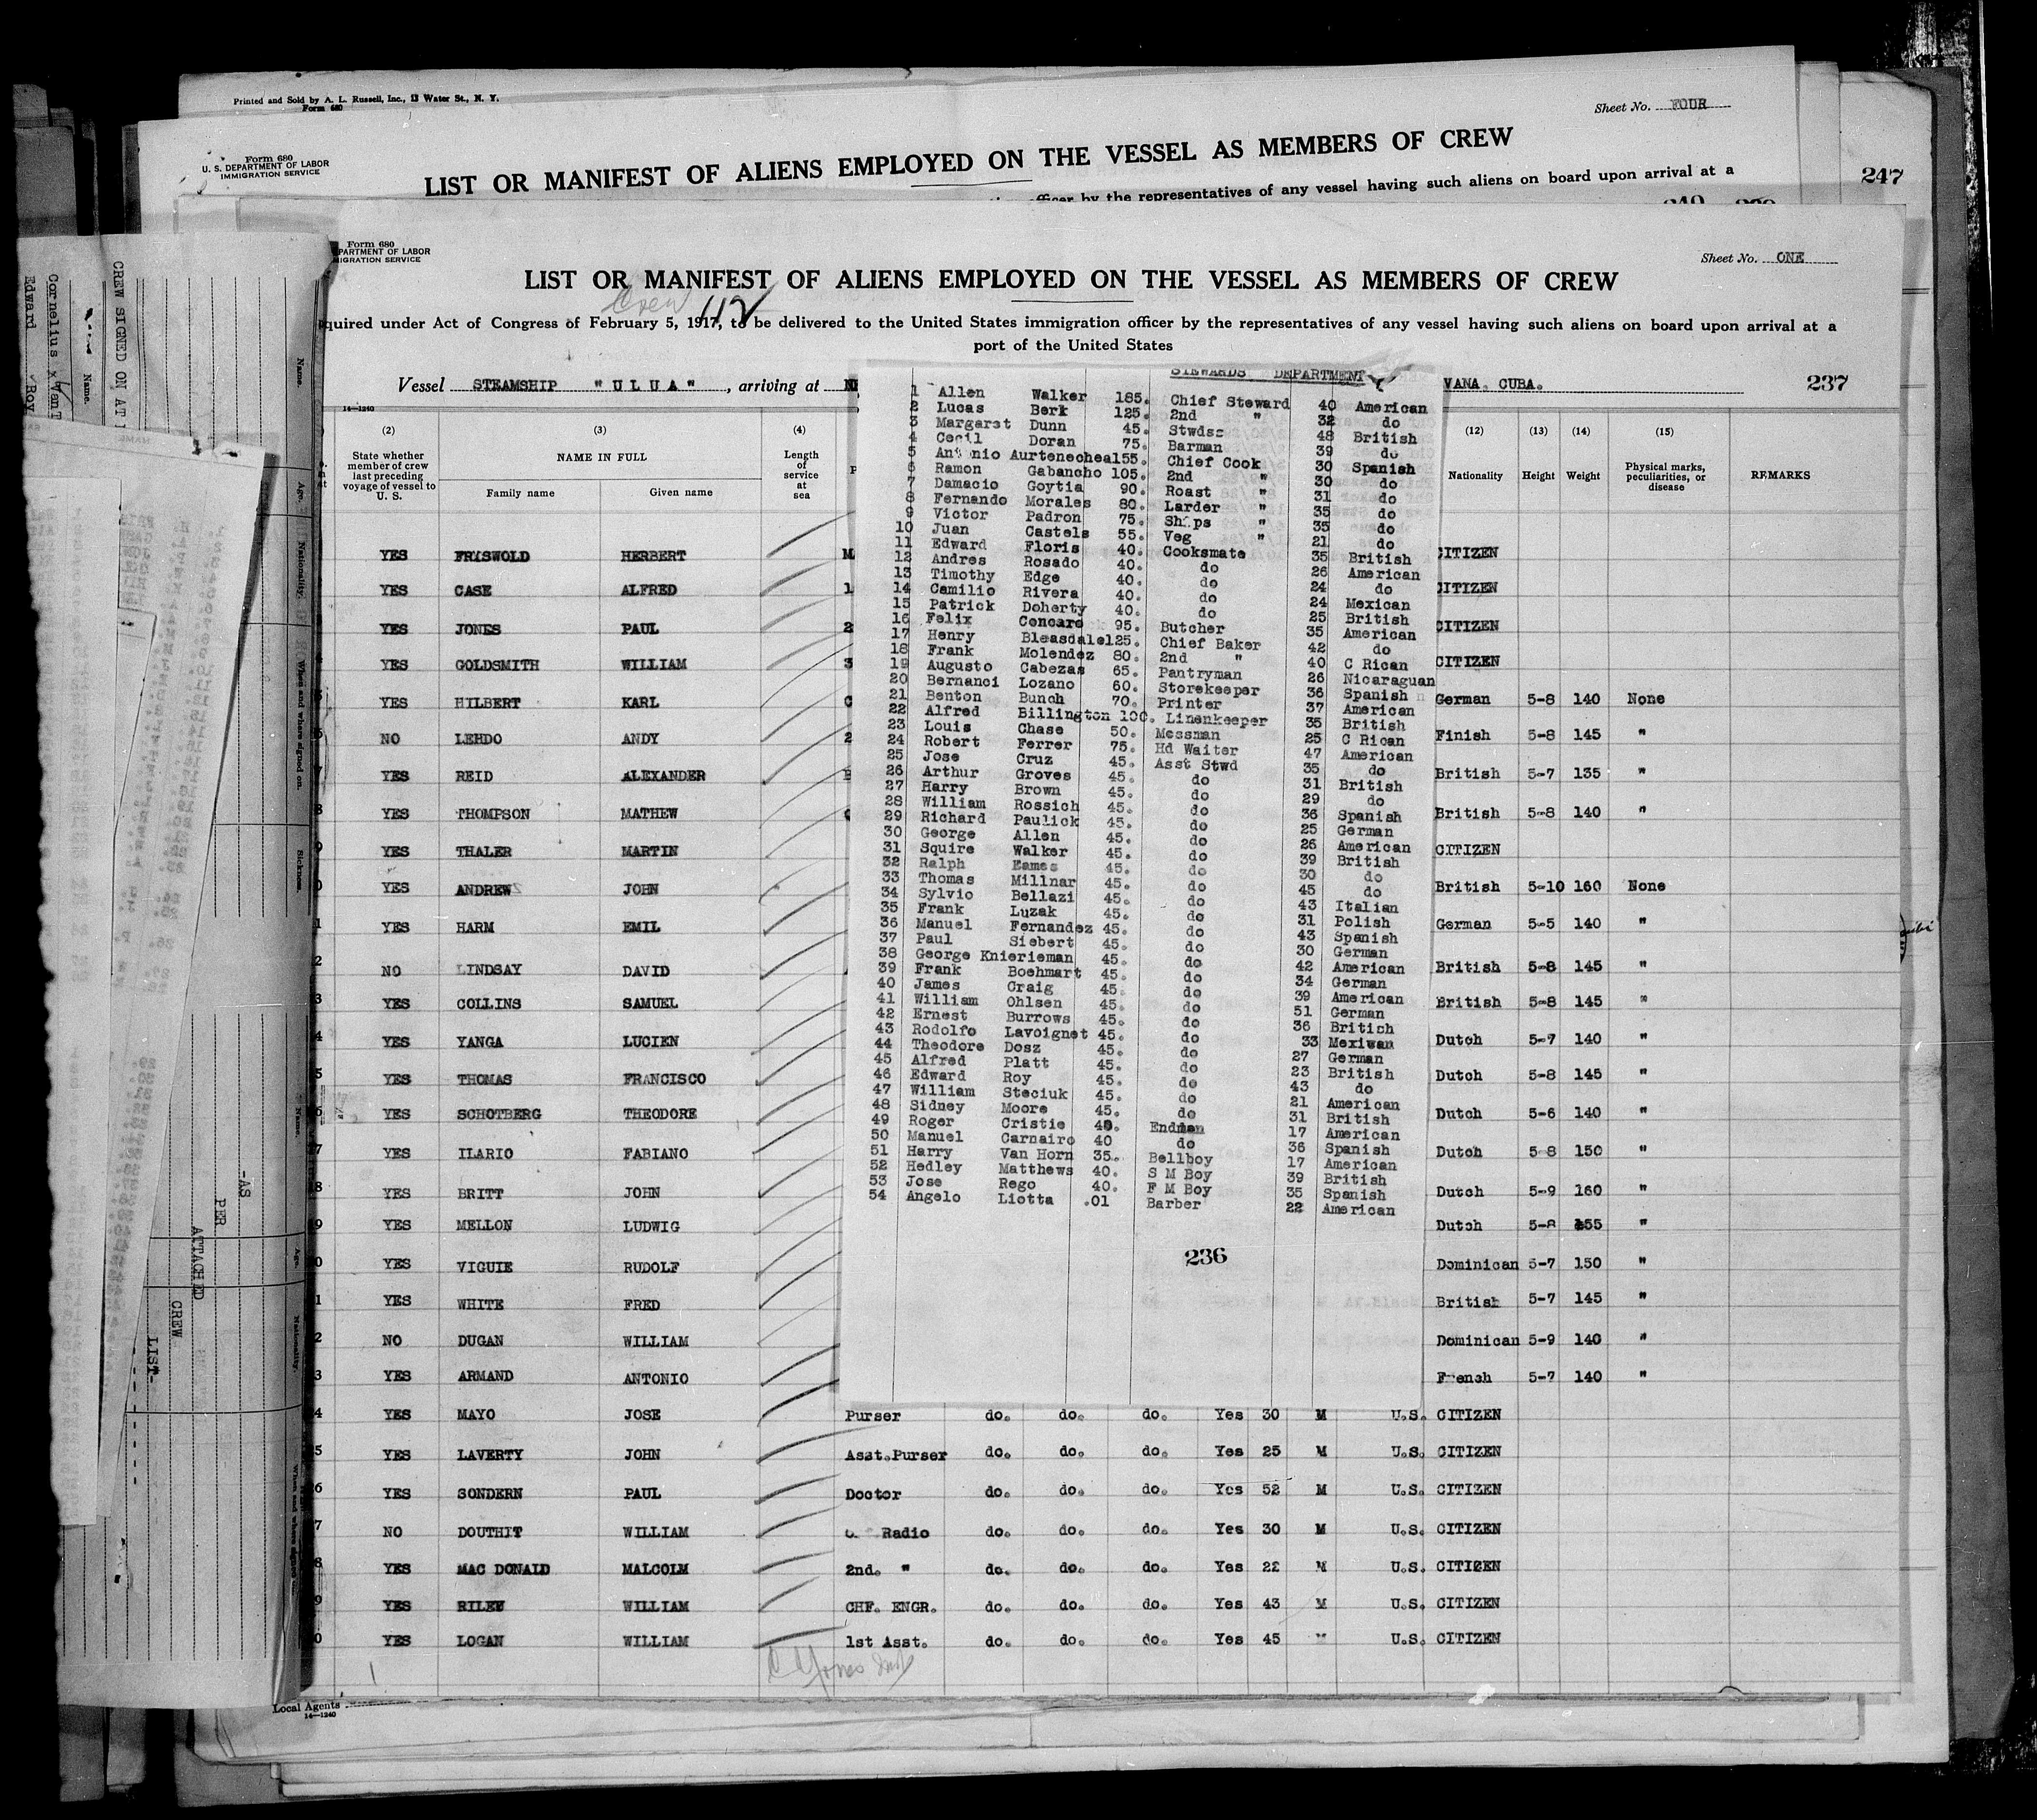 Printed and Sold by A. L. Russell, Inc., 13 Water St., N. Y.
Form 680
Sheet No. FOUR
Form 680
U. S. DEPARTMENT OF LABOR
IMMIGRATION SERVICE
LIST OR MANIFEST OF ALIENS EMPLOYED ON THE VESSEL AS MEMBERS OF CREW
officer by the representatives of any vessel having such aliens on board upon arrival at a
247
Form 680
PARTMENT OF LABOR
MIGRATION SERVICE
Sheet No. ONE
LIST OR MANIFEST OF ALIENS EMPLOYED ON THE VESSEL AS MEMBERS OF CREW
Crew 112
quired under Act of Congress of February 5, 1917, to be delivered to the United States immigration officer by the representatives of any vessel having such aliens on board upon arrival at a
port of the United States
Vessel STEAMSHIP "ULUA", arriving at
VANA. CUBA.
237
14—1240
(2) (3) (4) (12) (13) (14) (15)
State whether member of crew last preceding voyage of vessel to U. S.
NAME IN FULL
Family name Given name
Length of service at sea
Nationality Height Weight
Physical marks, peculiarities, or disease
REMARKS
YES FRISWOLD HERBERT CITIZEN
YES CASE ALFRED CITIZEN
YES JONES PAUL CITIZEN
YES GOLDSMITH WILLIAM CITIZEN
YES HILBERT KARL German 5-8 140 None
NO LEHDO ANDY Finish 5-8 145 "
YES REID ALEXANDER British 5-7 135 "
YES THOMPSON MATHEW British 5-8 140 "
YES THALER MARTIN CITIZEN
YES ANDREWS JOHN British 5-10 160 None
YES HARM EMIL German 5-5 140 "
NO LINDSAY DAVID British 5-8 145 "
YES COLLINS SAMUEL British 5-8 145 "
YES YANGA LUCIEN Dutch 5-7 140 "
YES THOMAS FRANCISCO Dutch 5-8 145 "
YES SCHOTBERG THEODORE Dutch 5-6 140 "
YES ILARIO FABIANO Dutch 5-8 150 "
YES BRITT JOHN Dutch 5-9 160 "
YES MELLON LUDWIG Dutch 5-8 155 "
YES VIGUIE RUDOLF Dominican 5-7 150 "
YES WHITE FRED British 5-7 145 "
NO DUGAN WILLIAM Dominican 5-9 140 "
YES ARMAND ANTONIO French 5-7 140 "
YES MAYO JOSE Purser do. do. do. Yes 30 M U.S. CITIZEN
YES LAVERTY JOHN Asst.Purser do. do. do. Yes 25 M U.S. CITIZEN
YES SONDERN PAUL Doctor do. do. do. Yes 52 M U.S. CITIZEN
NO DOUTHIT WILLIAM Radio do. do. do. Yes 30 M U.S. CITIZEN
YES MAC DONALD MALCOLM 2nd. " do. do. do. Yes 22 M U.S. CITIZEN
YES RILEY WILLIAM CHF. ENGR. do. do. do. Yes 43 M U.S. CITIZEN
YES LOGAN WILLIAM 1st Asst. do. do. do. Yes 45 M U.S. CITIZEN
STEWARDS DEPARTMENT
1 Allen Walker 185. Chief Steward 40 American
2 Lucas Berk 125. 2nd " 32 do
3 Margaret Dunn 45. Stwdss 48 British
4 Cecil Doran 75. Barman 39 do
5 Antonio Aurtenecheal 55. Chief Cook 30 Spanish
6 Ramon Gabancho 105. 2nd " 30 do
7 Damacio Goytia 90. Roast " 31 do
8 Fernando Morales 80. Larder " 35 do
9 Victor Padron 75. Ships " 35 do
10 Juan Castels 55. Veg " 21 do
11 Edward Floris 40. Cooksmate 35 British
12 Andres Rosado 40. do 26 American
13 Timothy Edge 40. do 24 do
14 Camilio Rivera 40. do 24 Mexican
15 Patrick Doherty 40. do 25 British
16 Felix Concaro 95. Butcher 35 American
17 Henry Bleasdale 125. Chief Baker 42 do
18 Frank Molendez 80. 2nd " 40 C Rican
19 Augusto Cabezas 65. Pantryman 26 Nicaraguan
20 Bernanci Lozano 60. Storekeeper 36 Spanish
21 Benton Bunch 70. Printer 37 American
22 Alfred Billington 100. Linenkeeper 35 British
23 Louis Chase 50. Messman 25 C Rican
24 Robert Ferrer 75. Hd Waiter 47 American
25 Jose Cruz 45. Asst Stwd 35 do
26 Arthur Groves 45. do 31 British
27 Harry Brown 45. do 29 do
28 William Rossich 45. do 36 Spanish
29 Richard Paulick 45. do 25 German
30 George Allen 45. do 26 American
31 Squire Walker 45. do 39 British
32 Ralph Eames 45. do 30 do
33 Thomas Millnar 45. do 45 do
34 Sylvio Bellazi 45. do 43 Italian
35 Frank Luzak 45. do 31 Polish
36 Manuel Fernandez 45. do 43 Spanish
37 Paul Siebert 45. do 30 German
38 George Knierieman 45. do 42 American
39 Frank Boehmart 45. do 34 German
40 James Craig 45. do 39 American
41 William Ohlsen 45. do 51 German
42 Ernest Burrows 45. do 36 British
43 Rodolfo Lavoignet 45. do 33 Mexiwan
44 Theodore Dosz 45. do 27 German
45 Alfred Platt 45. do 23 British
46 Edward Roy 45. do 43 do
47 William Steciuk 45. do 21 American
48 Sidney Moore 45. do 31 British
49 Roger Cristie 40. Endman 17 American
50 Manuel Carnairo 40 do 36 Spanish
51 Harry Van Horn 35. Bellboy 17 American
52 Hedley Matthews 40. S M Boy 39 British
53 Jose Rego 40. F M Boy 35 Spanish
54 Angelo Liotta .01 Barber 22 American
236
Local Agents
14—1240
CREW SIGNED ON AT
Name.
Cornelius x Van
Edward Roy
Name.
Age.
Nationality.
When and where signed on.
Sickness.
Name.
Age.
Nationality.
-AS
PER
ATTACHED
CREW
LIST-